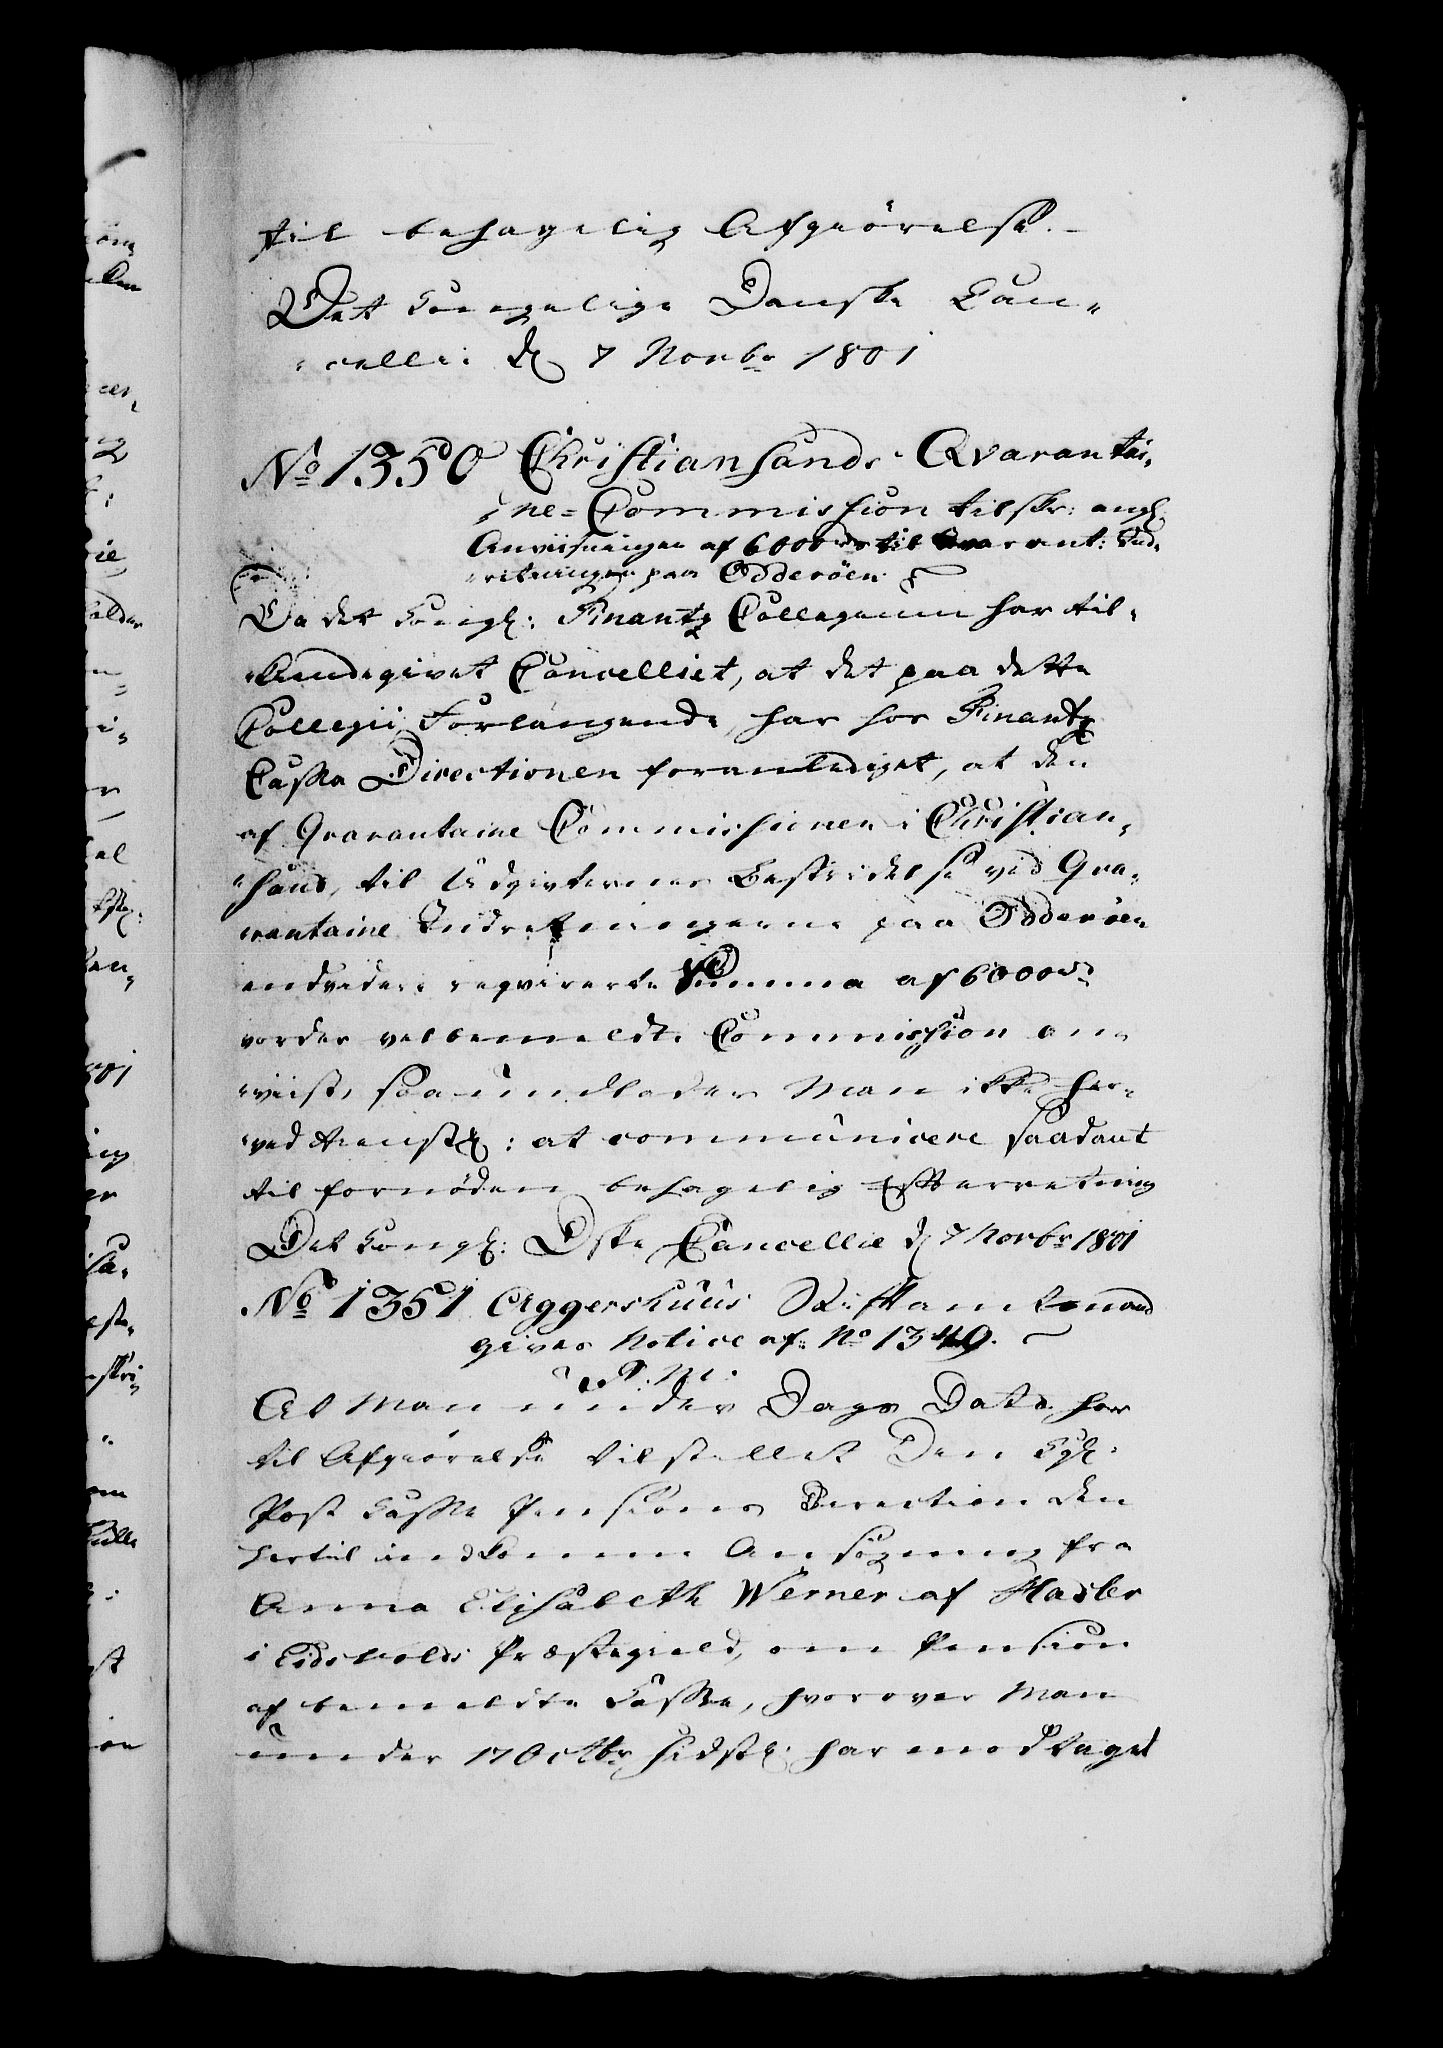 til behagelig Afgiörelse.
Det Kongelige Danske Can-
-cellie d: 7 Novbr 1801
No 1350 Christiansands Qvarantai-
ne-Commission tilskr: angl:
Anviisningen af 6000 rd til Qvarant: Ind-
retninger paa Odderöen
Da det Kongl: Finantz Collegium har til-
-kiendegivet Cancelliet, at det paa dette
Collegii Forlangende, har hos Finantz
Casse Directionen foranlediget, at den
af Qvarantaine Commissionen i Christian-
-sand, til Udgivternes Bestridelse ved Qva-
rantaine Indretningerne paa Odderöen
endvidere reqvirerte Summa af 6000 rd
vorder velbemeldte Commission an-
-viist, saa undlader Man ikke her-
-ved tienstl: at communicere saadant
til fornöden behagelig Efterretning
Det Kongl: Dske Cancellie d 7 Novbr 1801
No 1351 Aggershuus Stiftamtmand
gives Notice af No 1349.
P. M.
At Man under Dags Dato har
til Afgiörelse tilstillet Den Kgl:
Post Casse Pensions Direction den
hertil indkomne Ansögning fra
Anna Elisabeth Werner af Hasler
i Eidsvolds Præstegield, om Pension
af bemeldte Casse, hvorover Man
under 17 Octbr sidstl: har modtaget